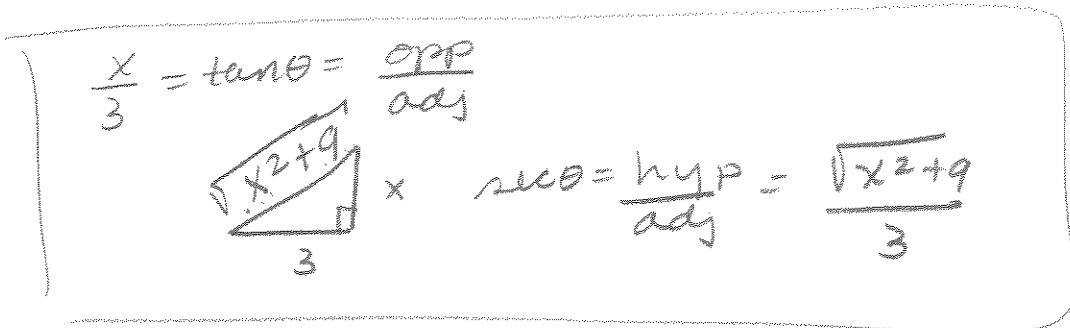 x/3 = tanθ = opp/adj
√x²+9
x
3
secθ = hyp/adj = √x²+9/3